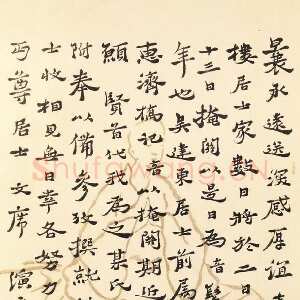 曩承遠送深感厚誼
樓居士家數日將於二日
十三日掩關以是日為音
年也吳建東居士前屬
惠濟橋記音以掩關期近
願 賢首代我為之某氏
附奉以備參攷撰就
士收相見無日幸各努力
丏尊居士文席 演